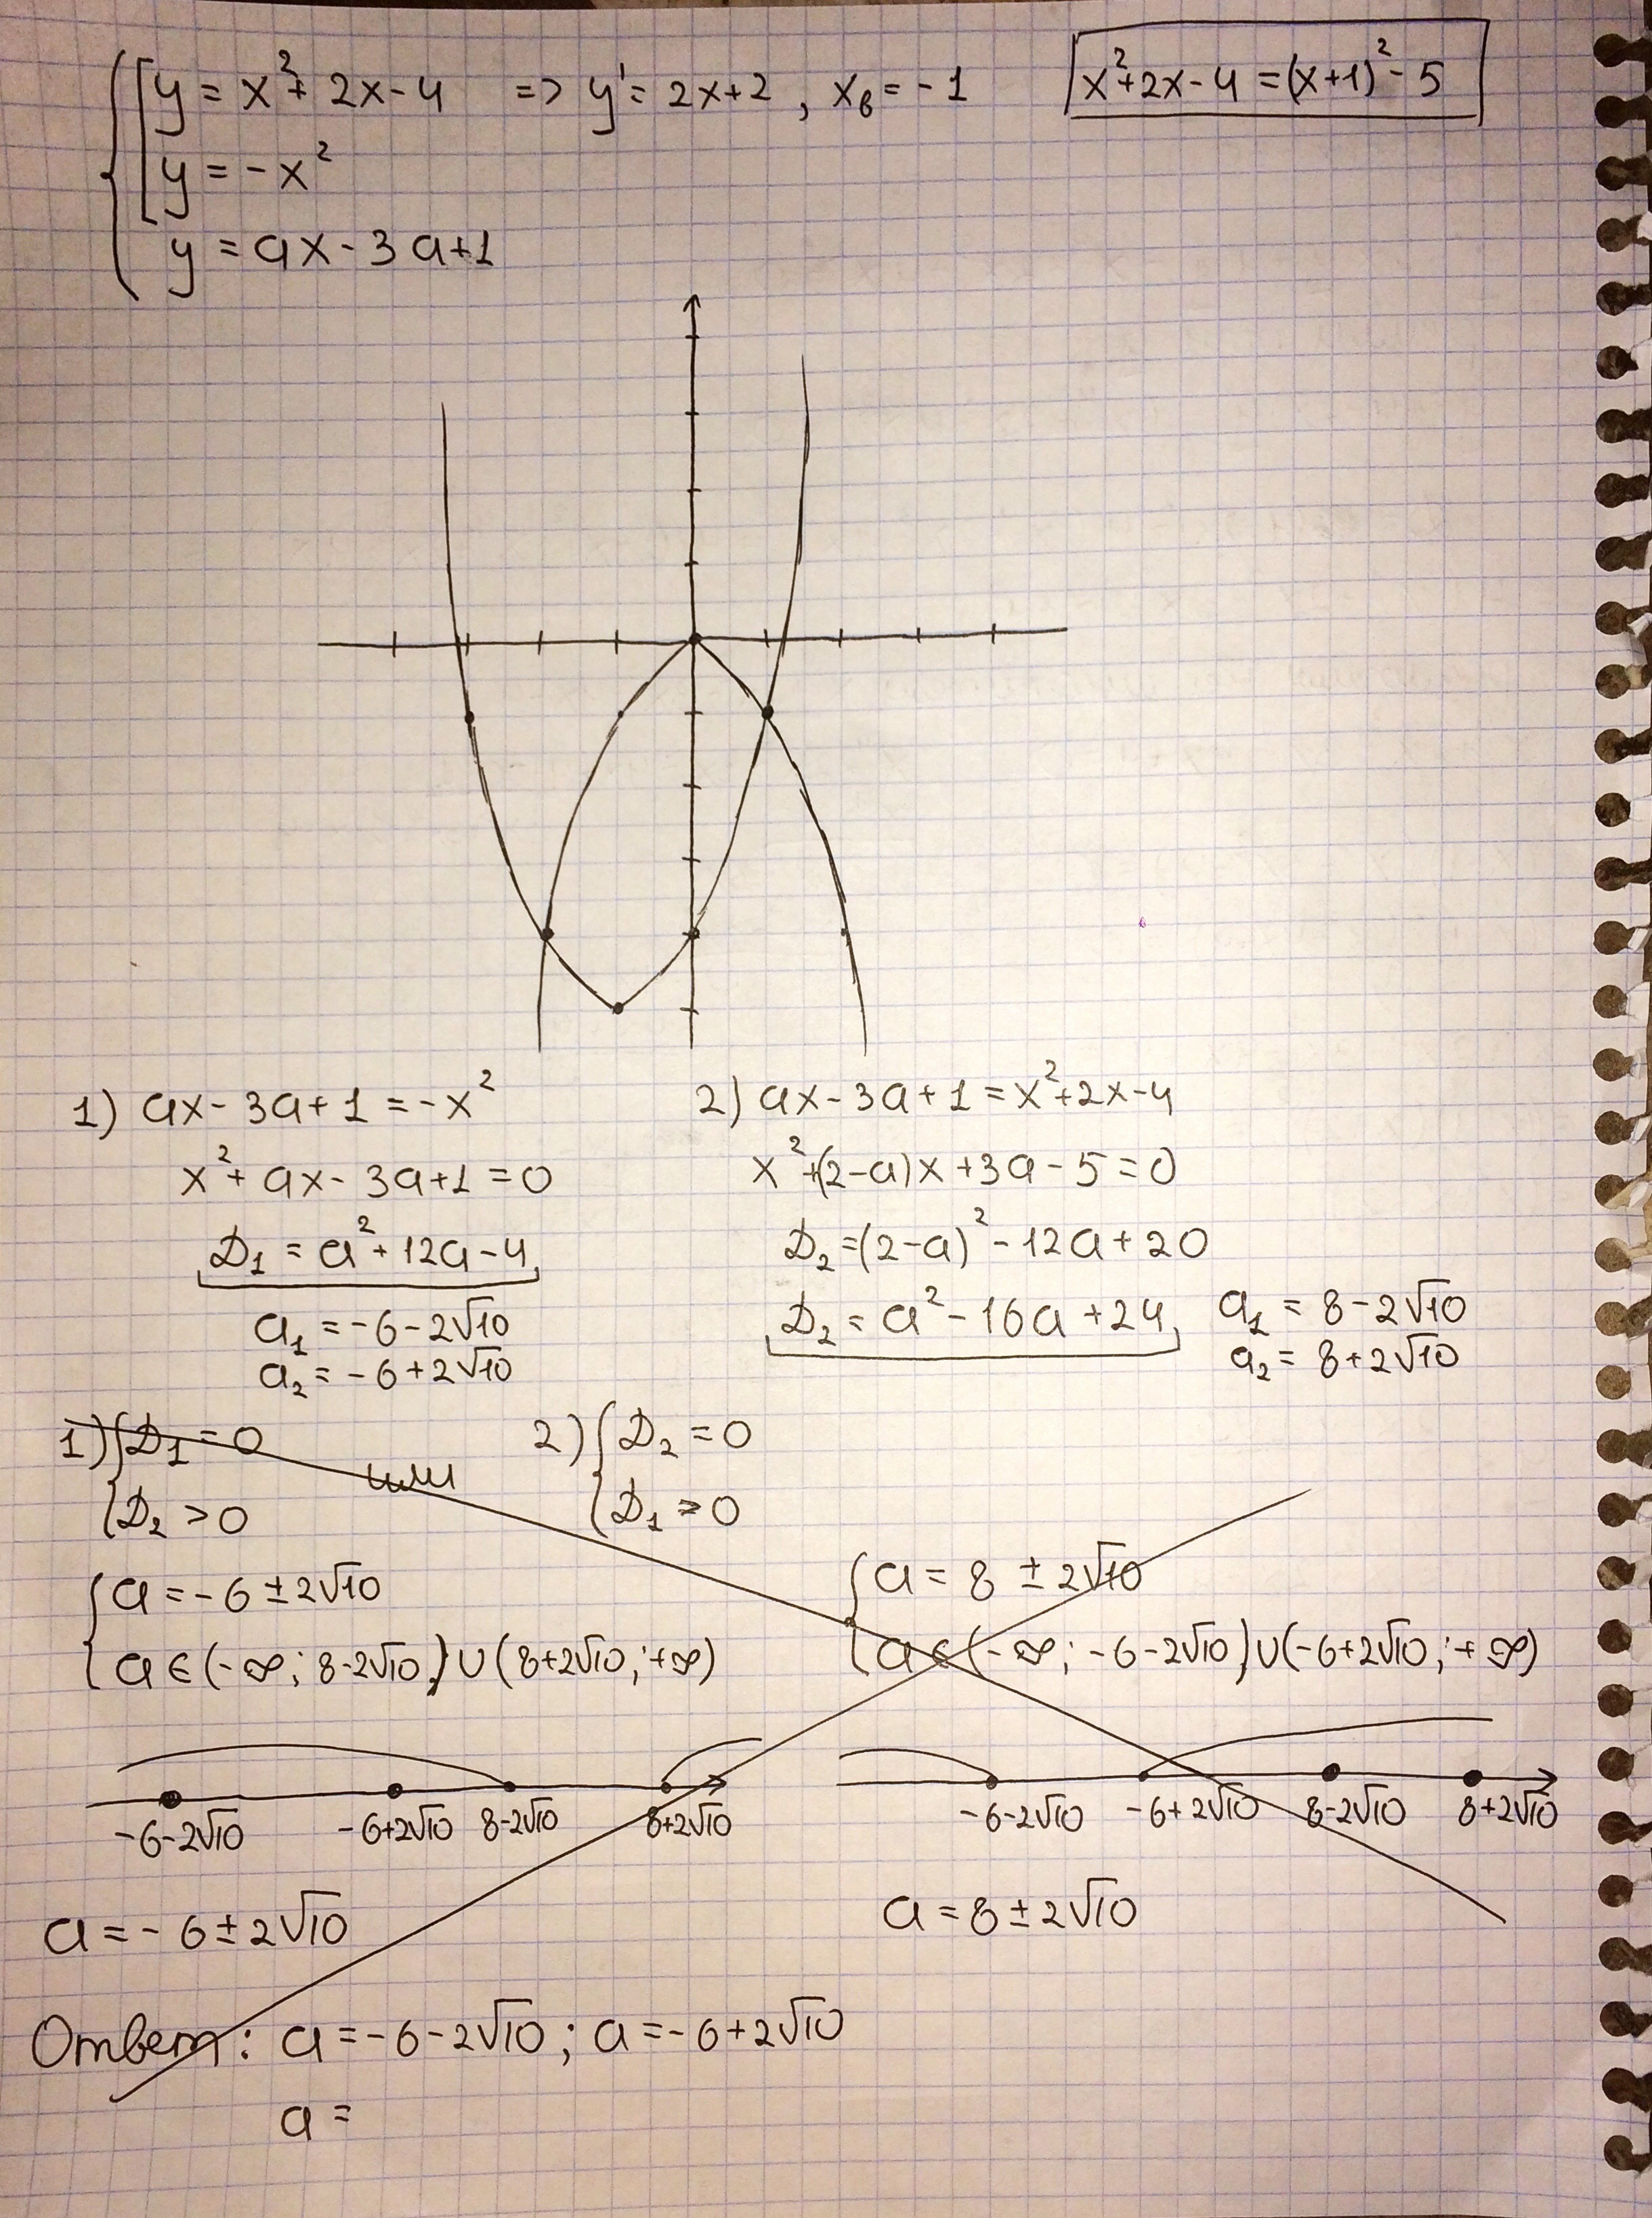 {[y = x²+ 2x - 4 => y' = 2x+2 , xв = -1
x²+2x-4 = (x+1)² - 5
y = -x²
y = ax - 3a+1
1) ax - 3a + 1 = -x²
x² + ax - 3a+1 = 0
D₁ = a² + 12a - 4
a₁ = -6 - 2√10
a₂ = -6 + 2√10
2) ax - 3a + 1 = x²+2x-4
x²+(2-a)x + 3a - 5 = 0
D₂ = (2-a)² - 12a + 20
D₂ = a² - 16a + 24
a₁ = 8 - 2√10
a₂ = 8 + 2√10
1) {D₁ = 0 или 2) {D₂ = 0
D₂ > 0 D₁ > 0
{a = -6 ± 2√10
a ∈ (-∞; 8-2√10) ∪ (8+2√10; +∞)
{a = 8 ± 2√10
a ∈ (-∞; -6-2√10) ∪ (-6+2√10; +∞)
-6-2√10 -6+2√10 8-2√10 8+2√10
-6-2√10 -6+2√10 8-2√10 8+2√10
a = -6 ± 2√10
a = 8 ± 2√10
Ответ: a = -6 - 2√10 ; a = -6 + 2√10
a =